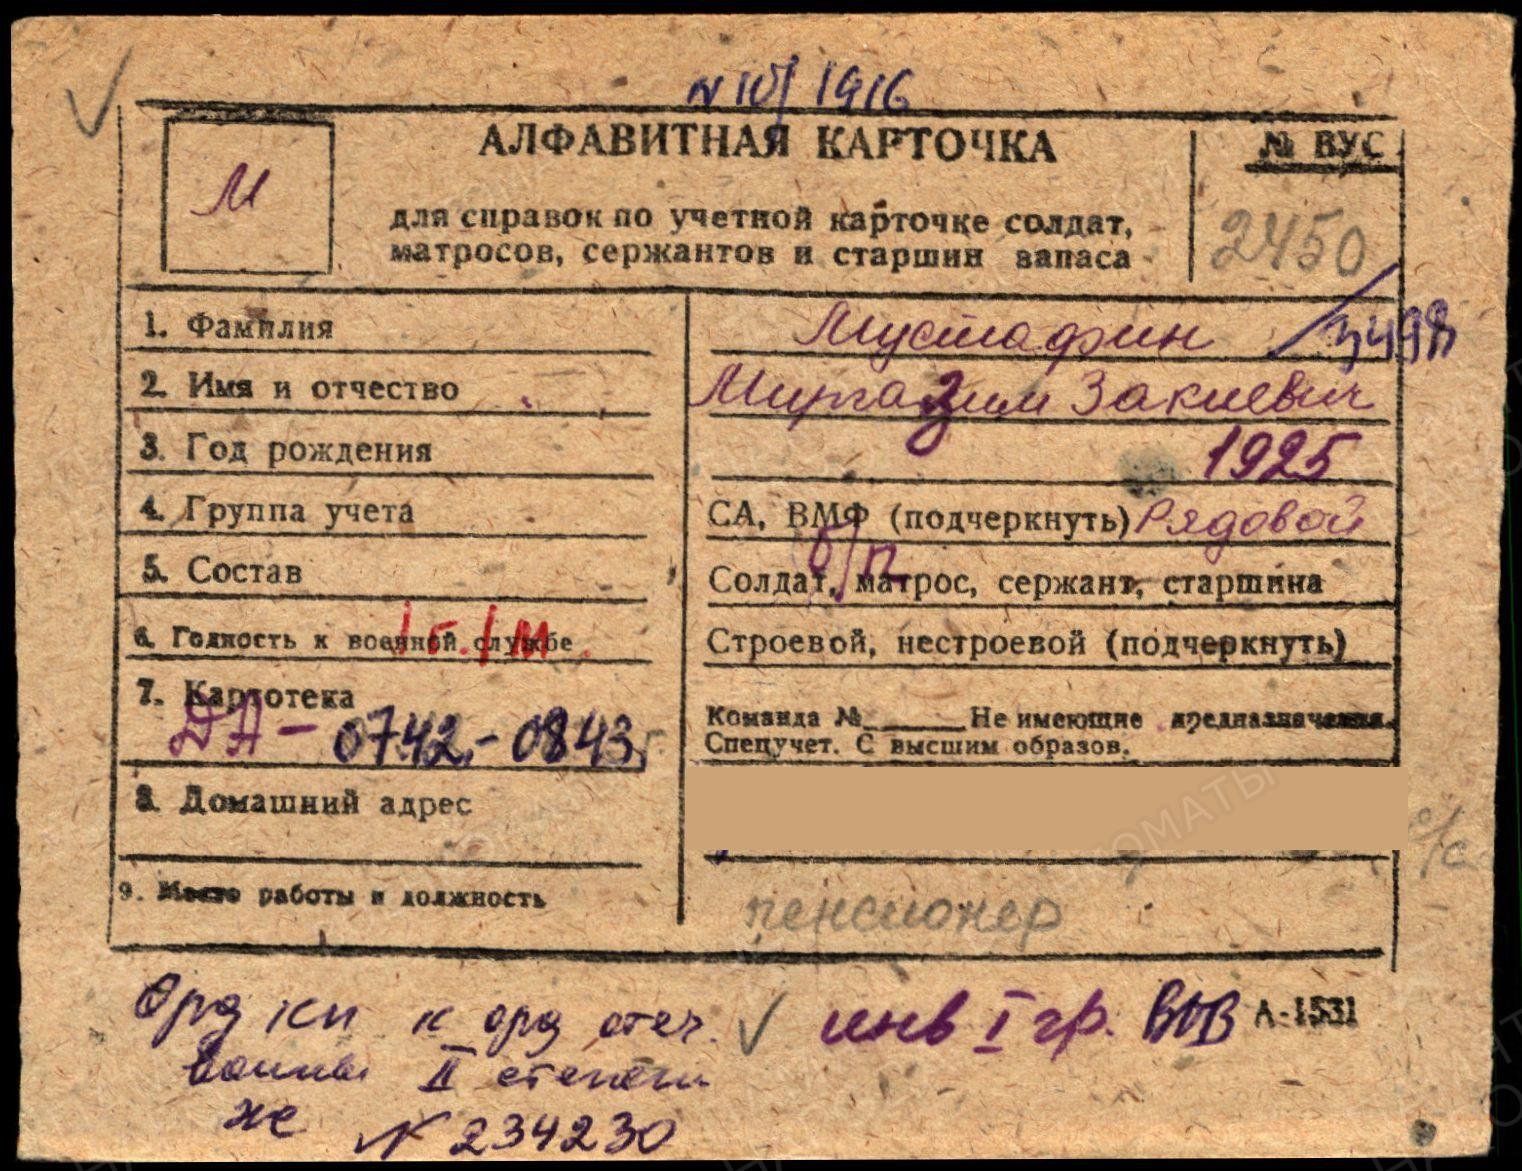 N 10/1916
М
АЛФАВИТНАЯ КАРТОЧКА
№ ВУС
для справок по учетной карточке солдат,
матросов, сержантов и старшин запаса
2450
1. Фамилия
Мустафин
2. Имя и отчество
Миргазим Закиевич
3. Год рождения
1925
4. Группа учета
СА, ВМФ (подчеркнуть) Рядовой
5. Состав
б/п
Солдат, матрос, сержант, старшина
6. Годность к военной службе
Строевой, нестроевой (подчеркнуть)
7. Картотека
ДА - 0742 - 0843
Команда № ____ Не имеющие предназначения.
Спецучет. С высшим образов.
8. Домашний адрес
с/с
9. Место работы и должность
пенсионер
Орд кн к орд отеч.
инв I гр. ВОВ
А-1531
войны II степени
же N 234230